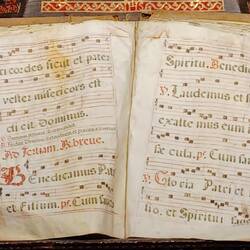 ricordes sicut et pater
vester misericors est
dicit Dominus.
Ad Tertiam. R. breve.
Benedicamus Pat
et Filium. p. Cum San
Spiritu. Benedi
V. Laudemus et
exaltemus eum
secula. p. Cum
V. Gloria Patri et
lio, et Spiritui San